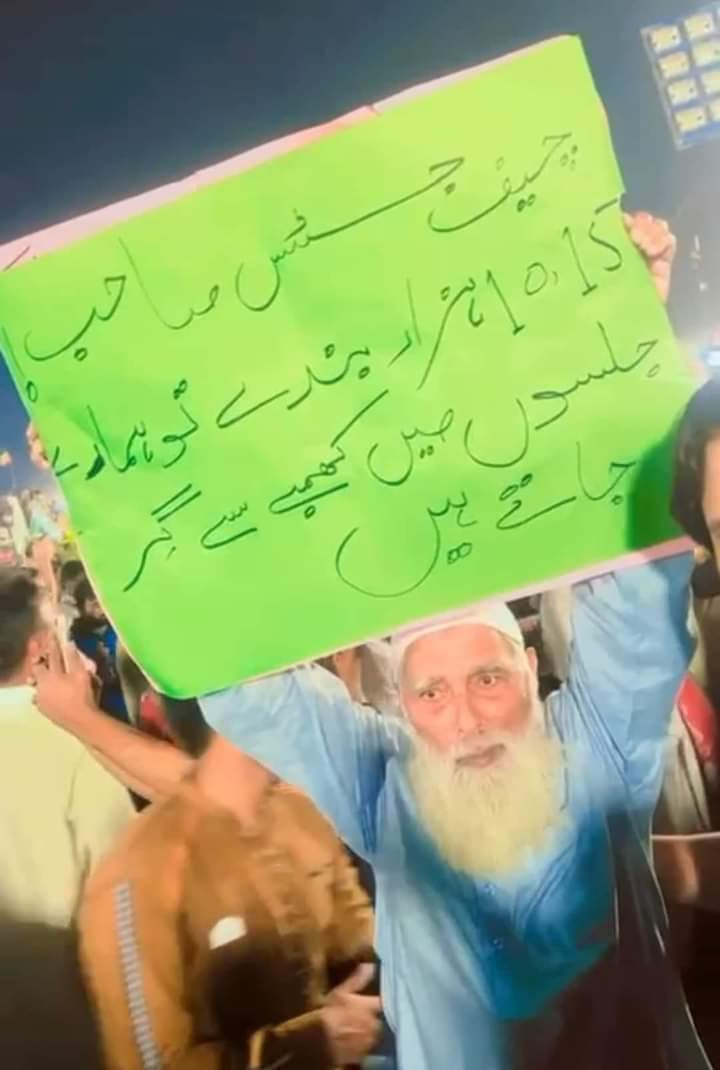 چیف جسٹس صاحب!
10،15 ہزار بندے تو ہمارے
جلسوں میں کھمبے سے گر
جاتے ہیں